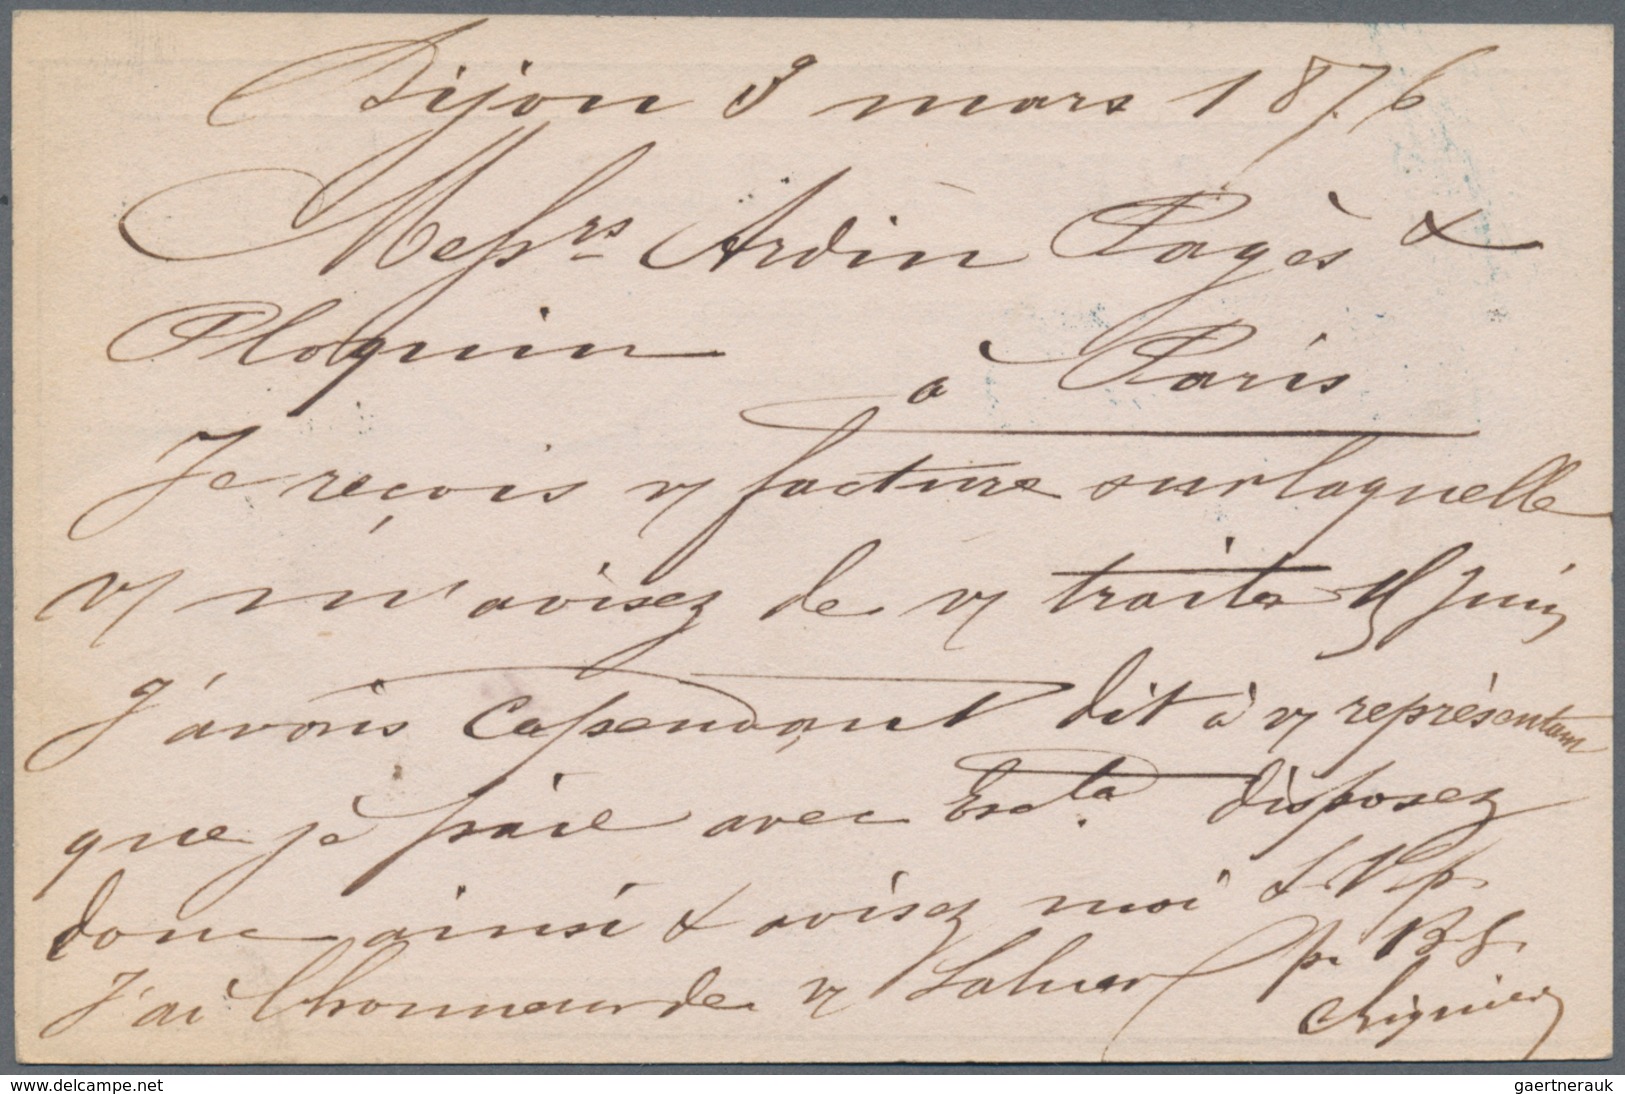 Dijon 9 mars 1876
Messrs Ardin Pagès &
Ploquin
a Paris
Je reçois v/ facture surlaquelle
v/ m'avisez de v/ traite Juin
J'avais Cependant dit à v/ représentan
que je paie avec Escte disposez
donc ainsi & avisez moi S.V.p
J'ai l'honneur de v/ Saluer p. B
delcampe.net
gaertnerauk